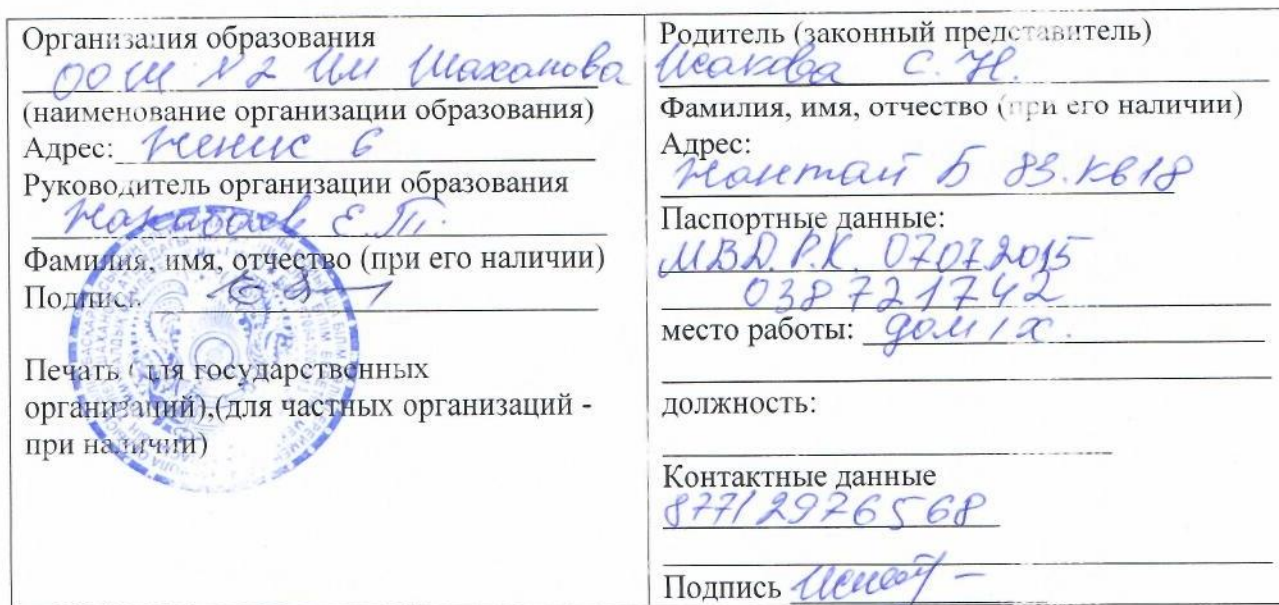 Организация образования
ООШ №2 им Шаханова
(наименование организации образования)
Адрес: Женис 6
Руководитель организации образования
Е.Т.
Фамилия, имя, отчество (при его наличии)
Подпись
Печать (для государственных
организаций),(для частных организаций -
при наличии)
Родитель (законный представитель)
Исакова С. Н.
Фамилия, имя, отчество (при его наличии)
Адрес:
Жантай Б 83. кв 18
Паспортные данные:
МВД. Р.К. 07072015
038721742
место работы: дом/х.
должность:
Контактные данные
87712976568
Подпись